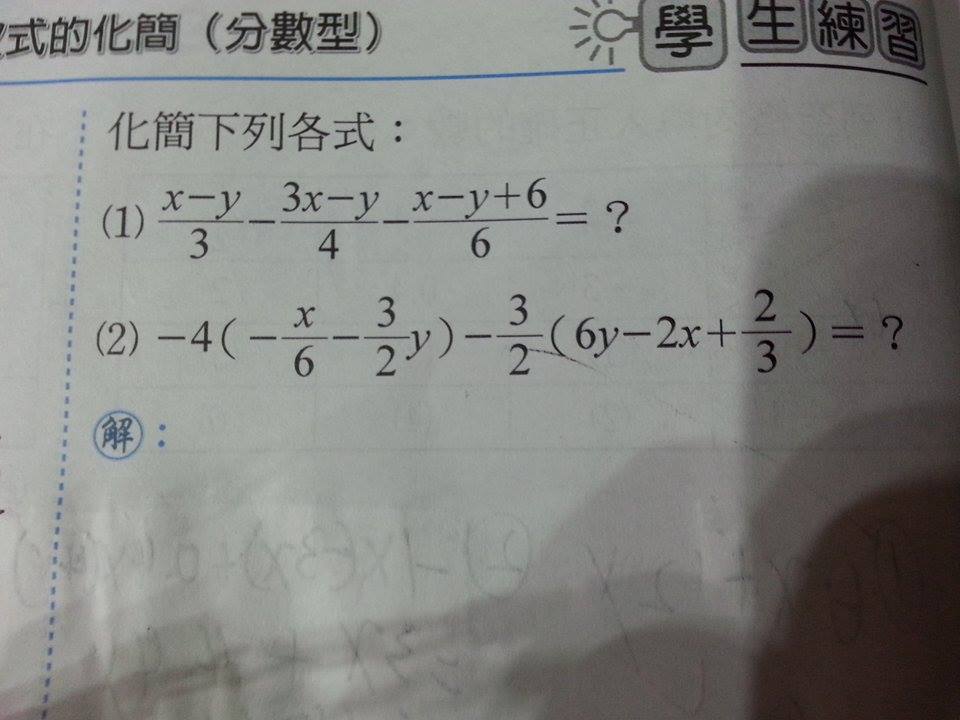 式的化簡（分數型） 學生練習
化簡下列各式：
(1) \frac{x-y}{3}-\frac{3x-y}{4}-\frac{x-y+6}{6}=？
(2) -4(-\frac{x}{6}-\frac{3}{2}y)-\frac{3}{2}(6y-2x+\frac{2}{3})=？
解：